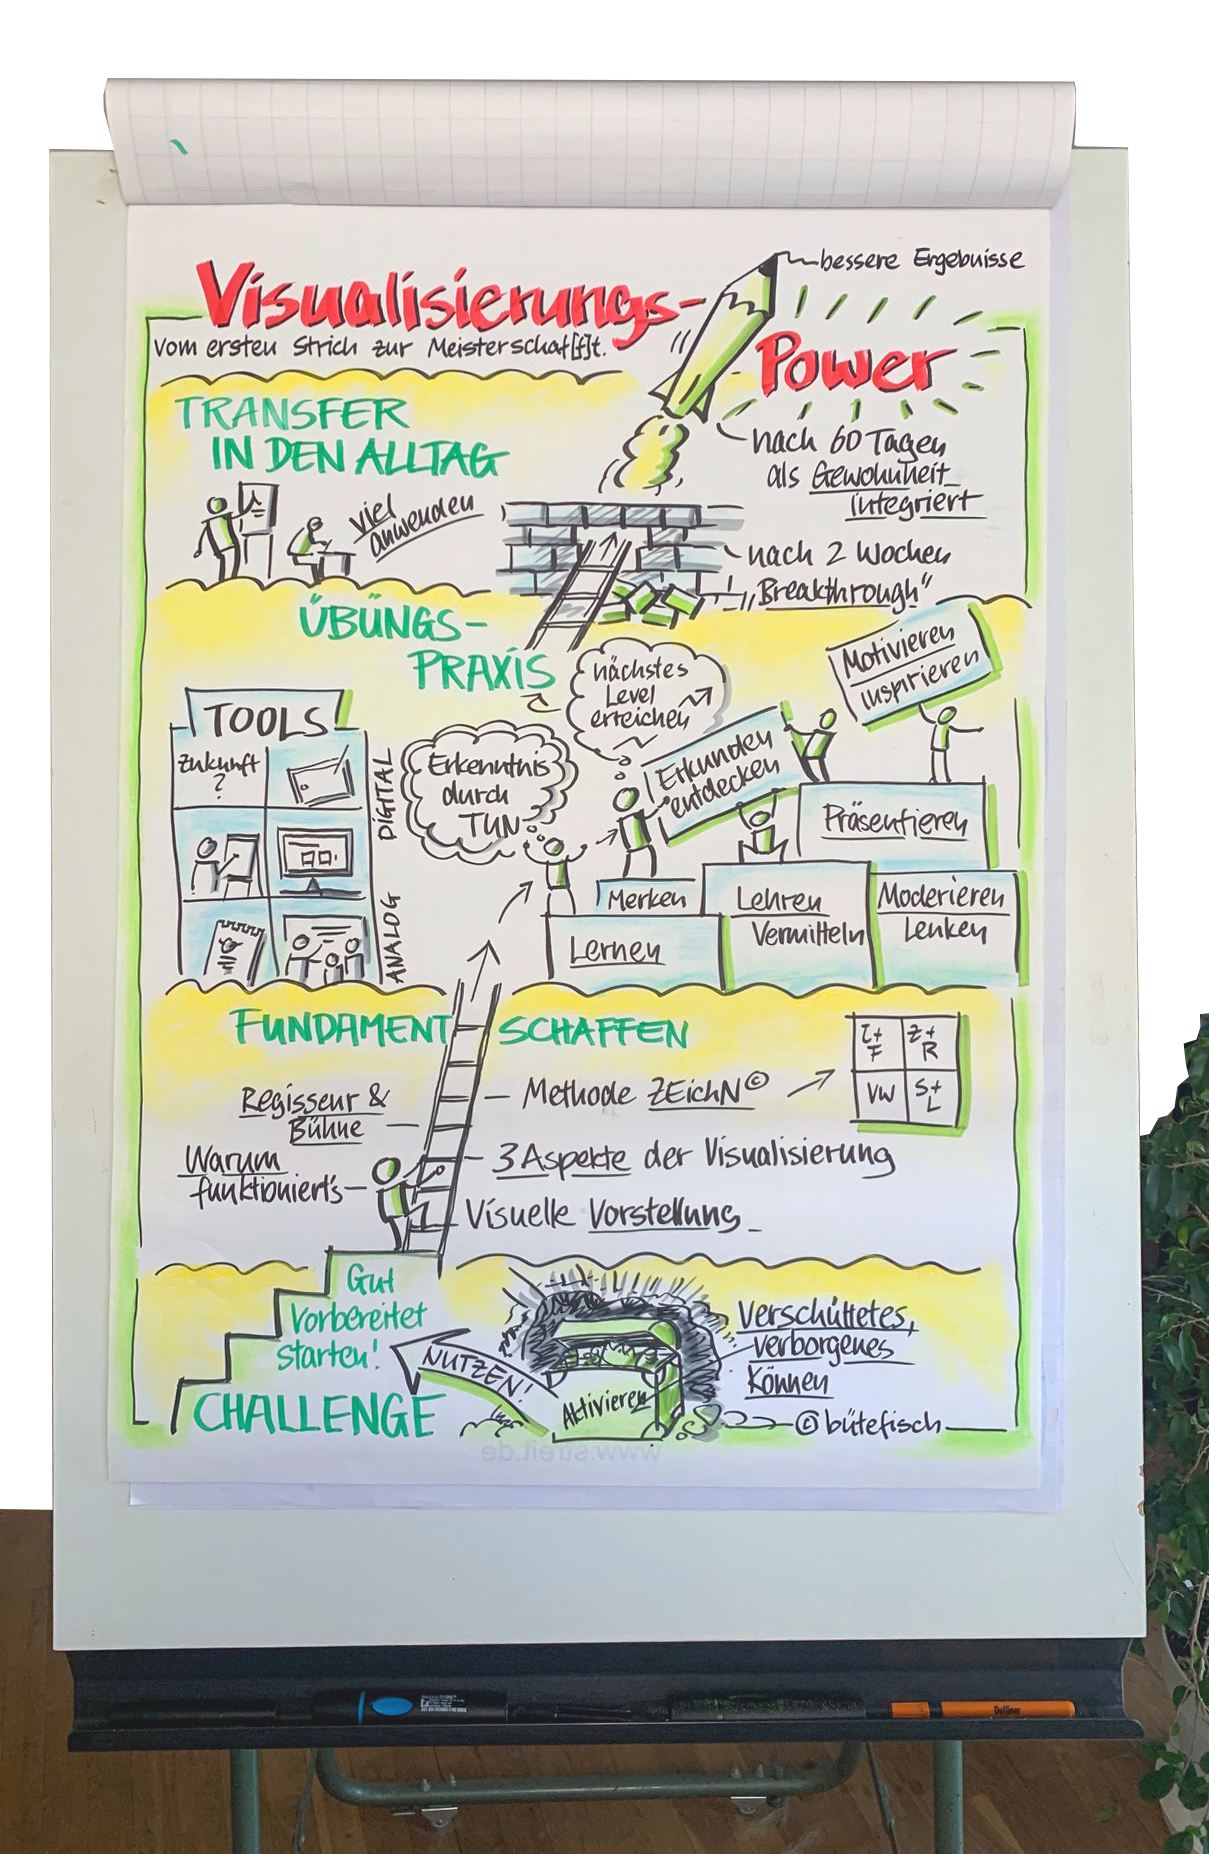 bessere Ergebnisse
Visualisierungs-
Power
Vom ersten Strich zur Meisterschaf[f]t.
TRANSFER
IN DEN ALLTAG
viel
anwenden
nach 60 Tagen
als Gewohnheit
integriert
nach 2 Wochen
„Breakthrough"
ÜBUNGS-
PRAXIS
TOOLS
Zukunft
?
DIGITAL
ANALOG
Erkenntnis
durch
TUN
nächstes
Level
erreichen
Motivieren
Inspirieren
Erkunden
entdecken
Präsentieren
Merken
Lernen
Lehren
Vermitteln
Moderieren
Lenken
FUNDAMENT SCHAFFEN
Methode ZEichN©
Z+
R
VW
S+
L
Regisseur &
Bühne
Warum
funktioniert's
3 Aspekte der Visualisierung
Visuelle Vorstellung
Gut
Vorbereitet
starten!
CHALLENGE
NUTZEN!
Aktivieren
Verschüttetes,
verborgenes
Können
© bütefisch
www.streit.de